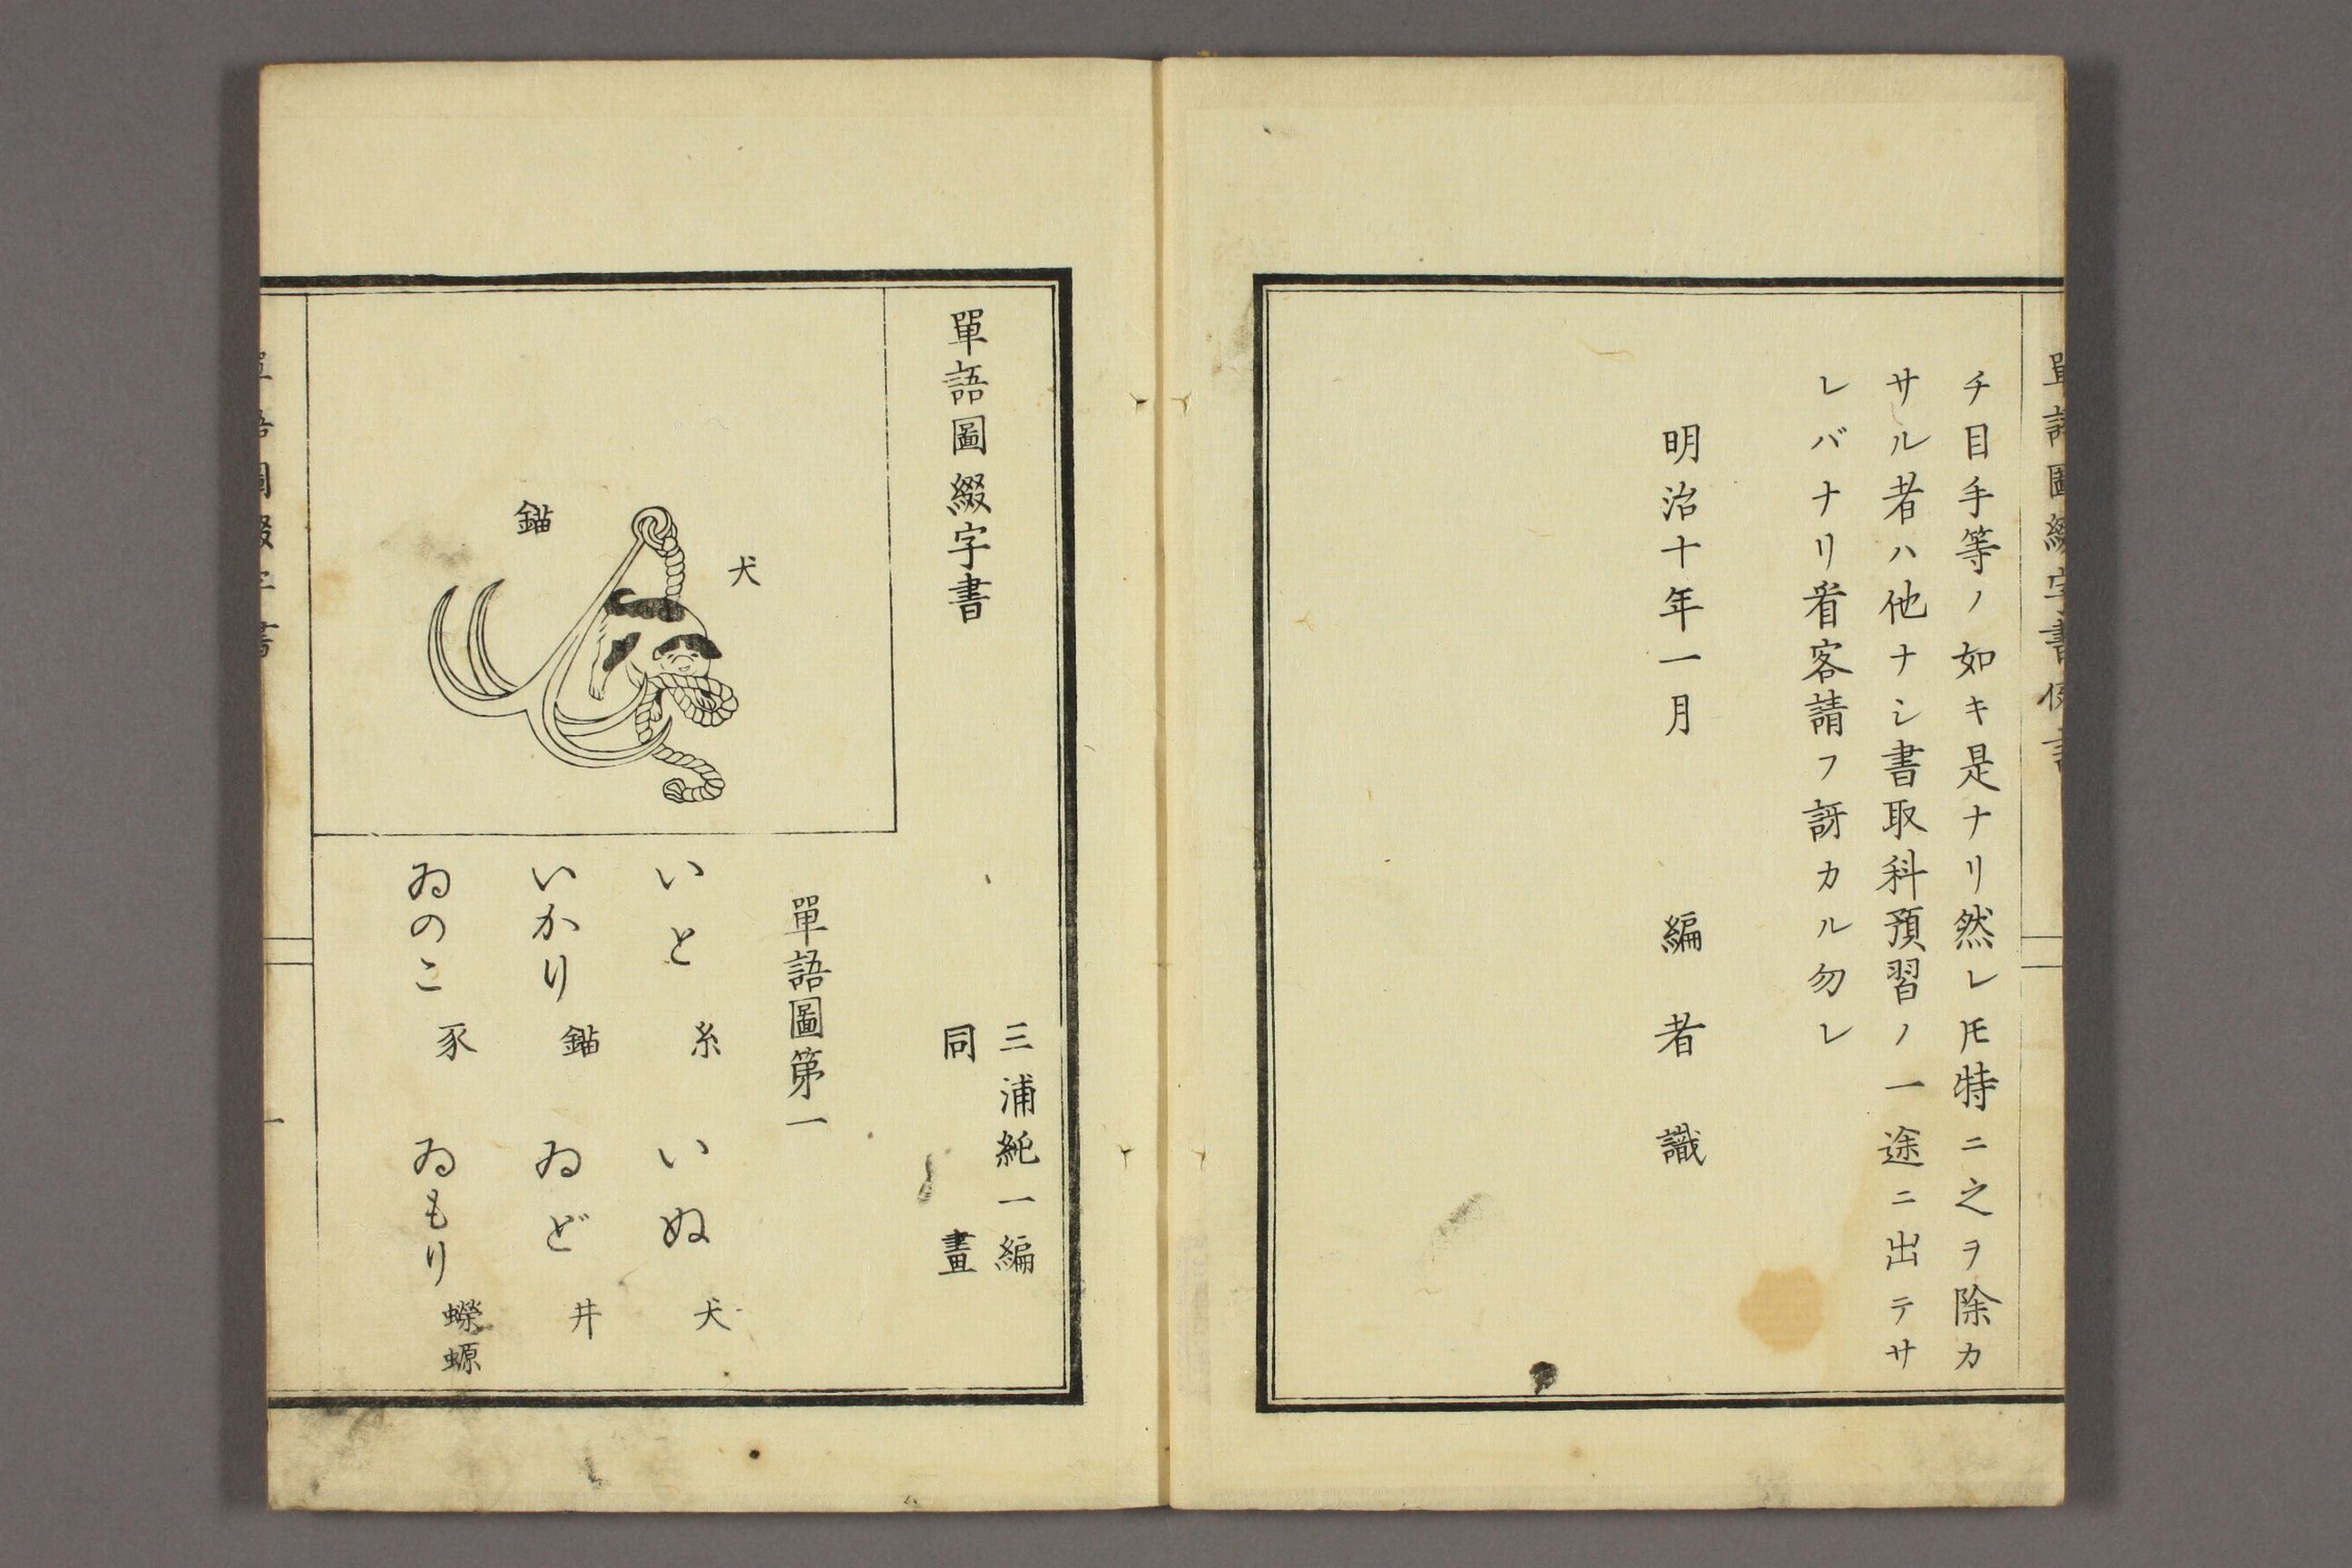 單語圖綴字書例言
チ目手等ノ如キ是ナリ然レ𪜈特ニ之ヲ除カ
サル者ハ他ナシ書取科預習ノ一途ニ出テサ
レバナリ看客請フ訝カル勿レ
明治十年一月 編者識
單語圖綴字書
三浦純一編
同 畫
犬
錨
單語圖第一
いと 糸 いぬ 犬
いかり 錨 ゐど 井
ゐのこ 豕 ゐもり 蠑螈
單語圖綴字書 一